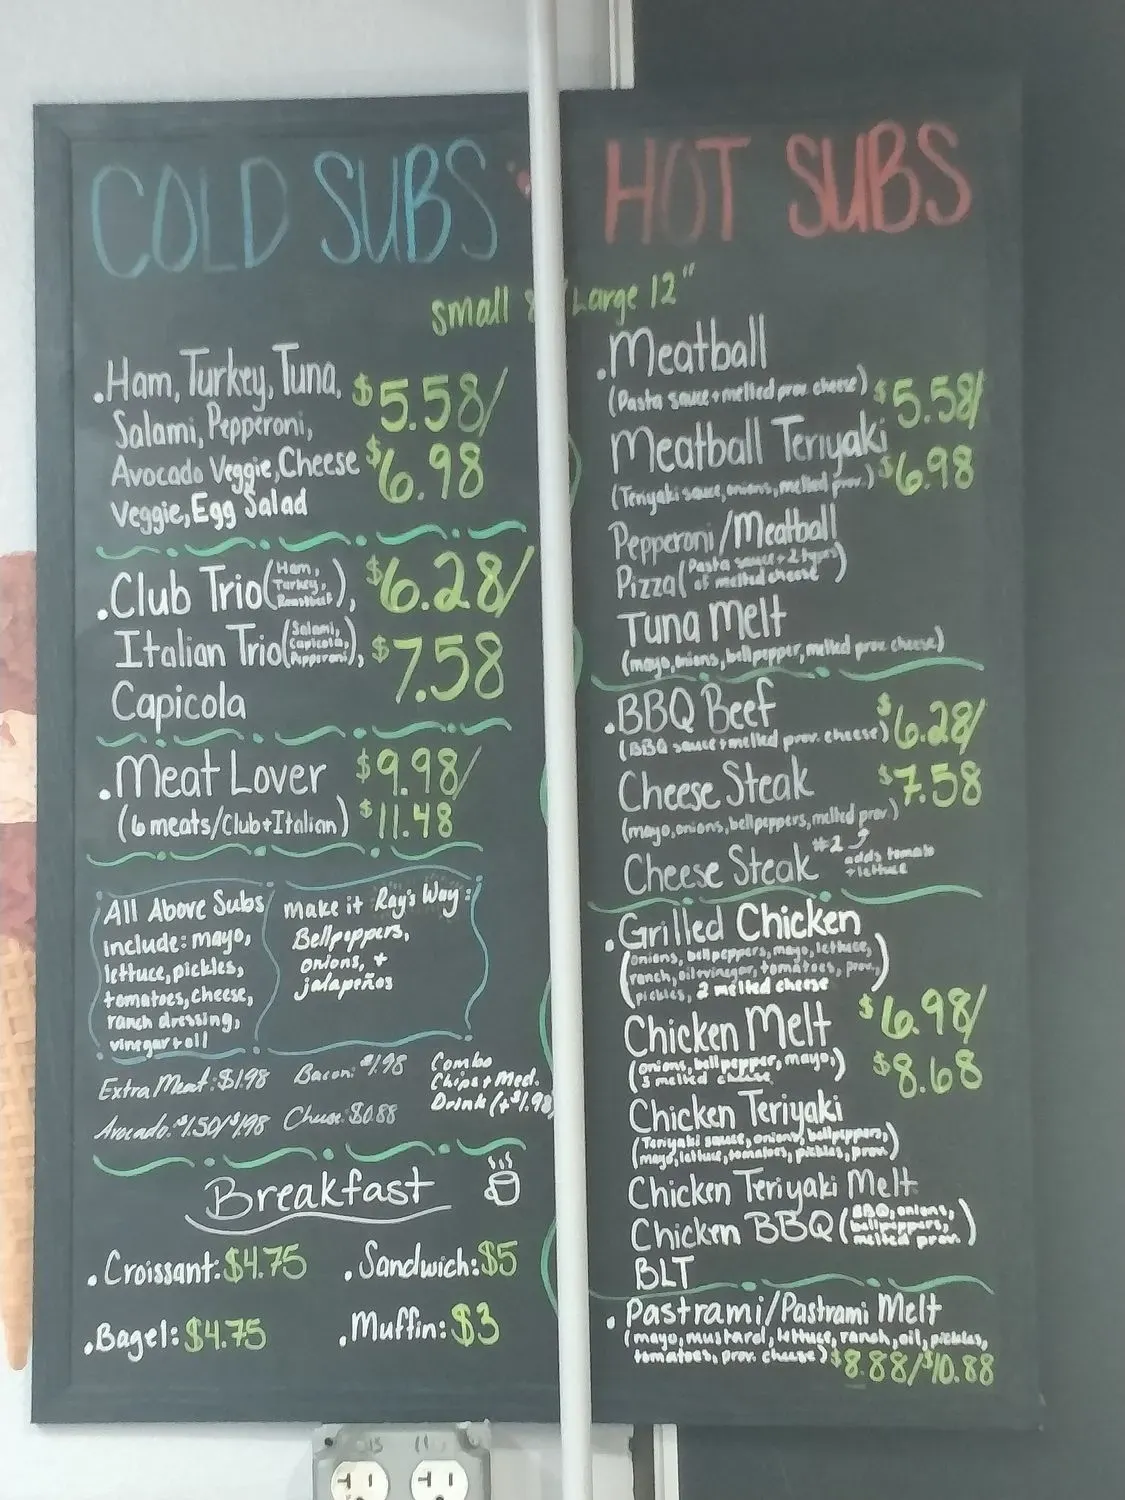 COLD SUBS
HOT SUBS
small 8 Large 12"
.Ham, Turkey, Tuna, $5.58/
Salami, Pepperoni,
Avocado Veggie, Cheese $6.98
Veggie, Egg Salad
.Club Trio (Ham, Turkey, Roastbeef), $6.28/
Italian Trio (Salami, Capicola, Pepperoni), $7.58
Capicola
.Meat Lover $9.98/
(6 meats/Club+Italian) $11.48
All Above Subs
include: mayo,
lettuce, pickles,
tomatoes, cheese,
ranch dressing,
vinegar+oil
make it Ray's Way:
Bellpeppers,
onions, +
jalapeños
Extra Meat: $1.98 Bacon: $1.98
Avocado: $1.50/$1.98 Cheese: $0.88
Combo
Chips + Med.
Drink (+$1.98)
Breakfast
.Croissant: $4.75 .Sandwich: $5
.Bagel: $4.75 .Muffin: $3
.Meatball
(Pasta sauce + melted prov. cheese) $5.58/
Meatball Teriyaki
(Teriyaki sauce, onions, melted prov.) $6.98
Pepperoni/Meatball
Pizza (Pasta sauce + 2 types of melted cheese)
Tuna Melt
(mayo, onions, bellpepper, melted prov. cheese)
.BBQ Beef $6.28/
(BBQ sauce + melted prov. cheese)
Cheese Steak $7.58
(mayo, onions, bellpeppers, melted prov.)
Cheese Steak #2 adds tomato + lettuce
.Grilled Chicken
(onions, bellpeppers, mayo, lettuce,
ranch, oil+vinegar, tomatoes, prov.,
pickles, 2 melted cheese)
Chicken Melt $6.98/
(onions, bellpepper, mayo, $8.68
3 melted cheese)
Chicken Teriyaki
(Teriyaki sauce, onions, bellpeppers,
mayo, lettuce, tomatoes, pickles, prov.)
Chicken Teriyaki Melt
Chicken BBQ (BBQ, onions, bellpeppers, melted prov.)
BLT
.Pastrami/Pastrami Melt
(mayo, mustard, lettuce, ranch, oil, pickles,
tomatoes, prov. cheese) $8.88/$10.88